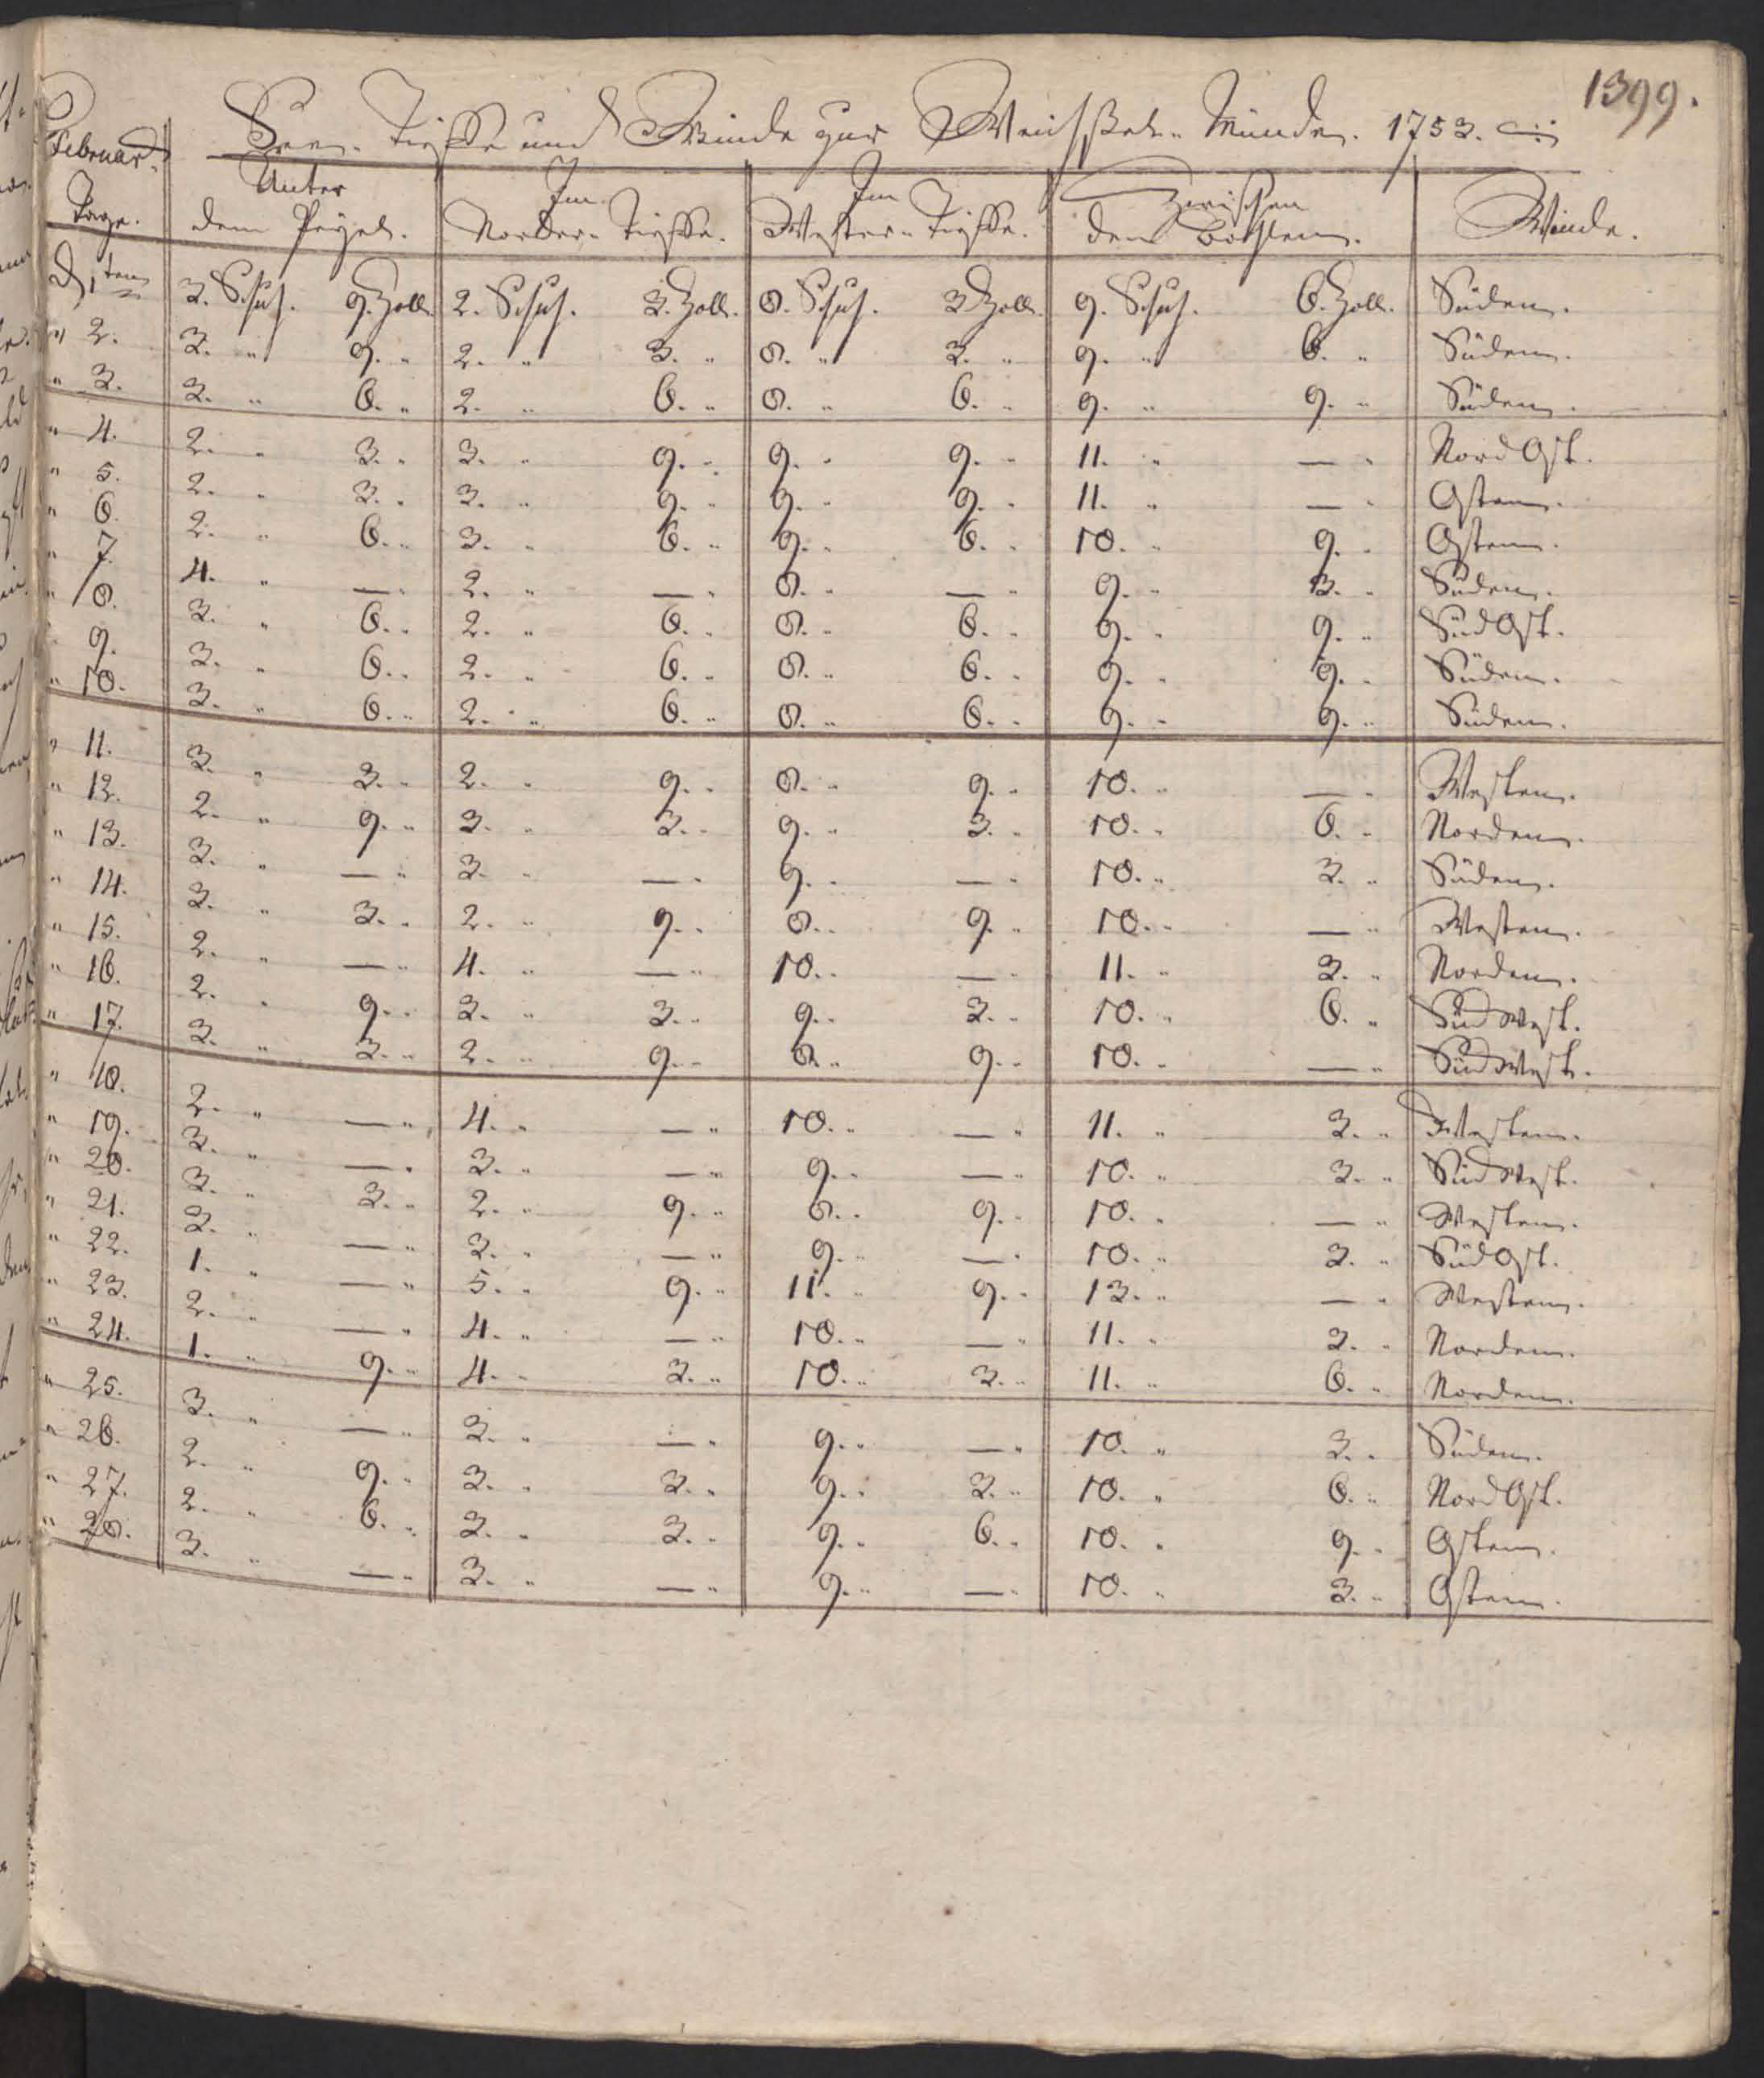 1399.
Seen-Tieffe und Winde zur Weichßel-Münde. 1753.
Februar.
Tage. Unter dem Peigel. Im Norder-Tieffe. Im Wester-Tieffe. Zwischen den Bohlen. Winde.
D. 1ten 3. Schuh. 9. Zoll. 2. Schuh. 3. Zoll. 8. Schuh. 3 Zoll. 9. Schuh. 6. Zoll. Süden.
" 2. 3. " 9. " 2. " 3. " 8. " 3. " 9. " 6. " Süden.
" 3. 3. " 6. " 2. " 6. " 8. " 6. " 9. " 9. " Süden.
" 4. 2. " 3. " 3. " 9. " 9. " 9. " 11. " — " Nord Ost.
" 5. 2. " 3. " 3. " 9. " 9. " 9. " 11. " — " Osten.
" 6. 2. " 6. " 3. " 6. " 9. " 6. " 10. " 9. " Osten.
" 7. 4. " — " 2. " — " 8. " — " 9. " 3. " Süden.
" 8. 3. " 6. " 2. " 6. " 8. " 6. " 9. " 9. " Süd Ost.
" 9. 3. " 6. " 2. " 6. " 8. " 6. " 9. " 9. " Süden.
" 10. 3. " 6. " 2. " 6. " 8. " 6. " 9. " 9. " Süden.
" 11. 3. " 3. " 2. " 9. " 8. " 9. " 10. " — " Westen.
" 12. 2. " 9. " 3. " 3. " 9. " 3. " 10. " 6. " Norden.
" 13. 3. " — " 3. " — " 9. " — " 10. " 3. " Süden.
" 14. 3. " 3. " 2. " 9. " 8. " 9. " 10. " — " Westen.
" 15. 2. " — " 4. " — " 10. " — " 11. " 3. " Norden.
" 16. 2. " 9. " 3. " 3. " 9. " 3. " 10. " 6. " Süd West.
" 17. 3. " 3. " 2. " 9. " 8. " 9. " 10. " — " Süd West.
" 18. 2. " — " 4. " — " 10. " — " 11. " 3. " Westen.
" 19. 3. " — " 3. " — " 9. " — " 10. " 3. " Süd West.
" 20. 3. " 3. " 2. " 9. " 8. " 9. " 10. " — " Westen.
" 21. 3. " — " 3. " — " 9. " — " 10. " 3. " Süd Ost.
" 22. 1. " — " 5. " 9. " 11. " 9. " 13. " — " Westen.
" 23. 2. " — " 4. " — " 10. " — " 11. " 3. " Norden.
" 24. 1. " 9. " 4. " 3. " 10. " 3. " 11. " 6. " Norden.
" 25. 3. " — " 3. " — " 9. " — " 10. " 3. " Süden.
" 26. 2. " 9. " 3. " 3. " 9. " 3. " 10. " 6. " Nord Ost.
" 27. 2. " 6. " 3. " 3. " 9. " 6. " 10. " 9. " Osten.
" 28. 3. " — " 3. " — " 9. " — " 10. " 3. " Osten.